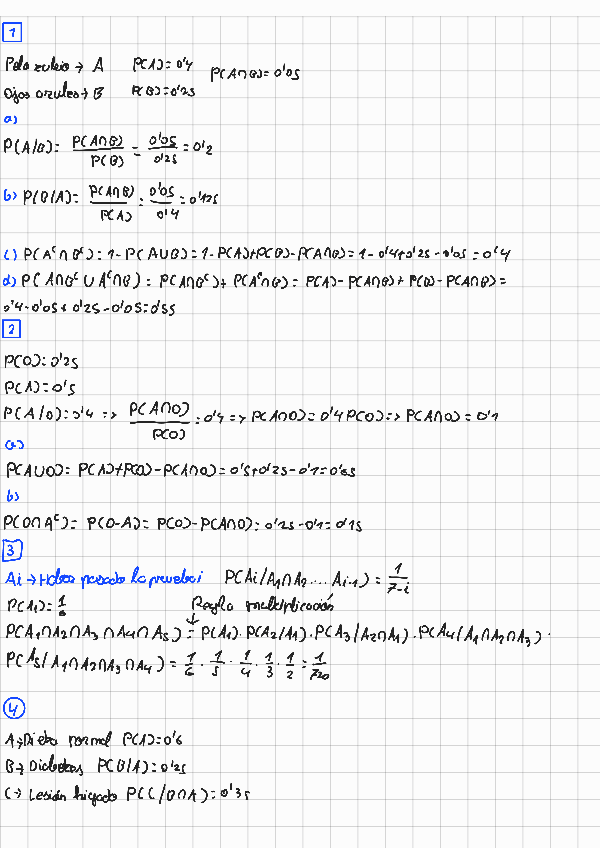 1
Pelo rubio → A P(A)=0'4 P(A∩B)=0'05
Ojos azules → B P(B)=0'25
a)
P(A/B)= P(A∩B)/P(B) = 0'05/0'25 = 0'2
b) P(B/A)= P(A∩B)/P(A) = 0'05/0'4 = 0'125
c) P(Aᶜ∩Bᶜ)=1-P(A∪B)=1-P(A)+P(B)-P(A∩B)=1-0'4+0'25-0'05=0'4
d) P(A∩Bᶜ∪Aᶜ∩B)=P(A∩Bᶜ)+P(Aᶜ∩B)=P(A)-P(A∩B)+P(B)-P(A∩B)=
0'4-0'05+0'25-0'05=0'55
2
P(O)=0'25
P(A)=0'5
P(A/O)=0'4 => P(A∩O)/P(O) = 0'4 => P(A∩O)=0'4 P(O) => P(A∩O)=0'1
a)
P(A∪O)=P(A)+P(O)-P(A∩O)=0'5+0'25-0'1=0'65
b)
P(O∩Aᶜ)=P(O-A)=P(O)-P(A∩O)=0'25-0'1=0'15
3
Ai → Haber pasado la prueba i P(Ai/A₁∩A₂....Ai-1)= 1/7-i
P(A₁)=1/6 Regla multiplicación
↓
P(A₁∩A₂∩A₃∩A₄∩A₅)=P(A₁)·P(A₂/A₁)·P(A₃/A₂∩A₁)·P(A₄/A₁∩A₂∩A₃)·
P(A₅/A₁∩A₂∩A₃∩A₄)=1/6·1/5·1/4·1/3·1/2=1/720
4
A → Dieta normal P(A)=0'6
B → Diabetes P(B/A)=0'25
C → Lesión hígado P(C/B∩A)=0'35